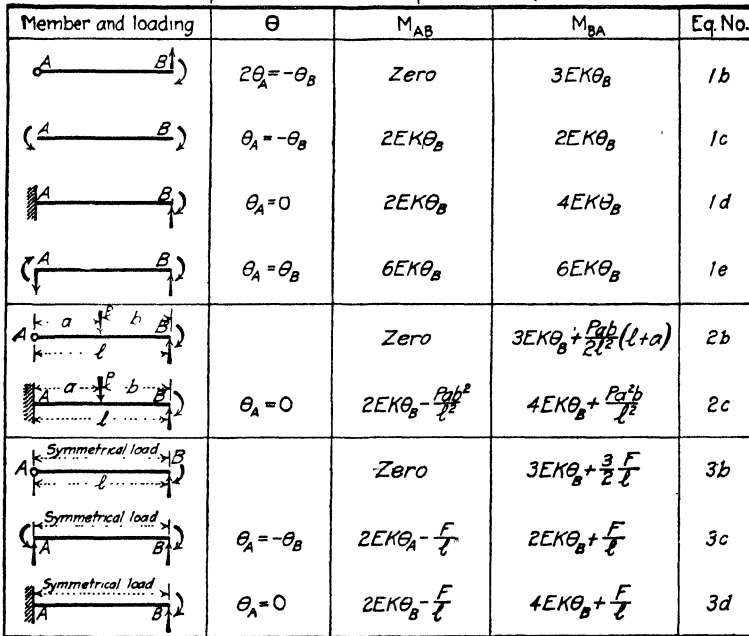 Member and loading θ M_AB M_BA Eq. No.
A B 2θ_A = -θ_B Zero 3EKθ_B 1b
A B θ_A = -θ_B 2EKθ_B 2EKθ_B 1c
A B θ_A = 0 2EKθ_B 4EKθ_B 1d
A B θ_A = θ_B 6EKθ_B 6EKθ_B 1e
a P b
A B l Zero 3EKθ_B + Pab/2l² (l+a) 2b
a P b
A B l θ_A = 0 2EKθ_B - Pab²/l² 4EKθ_B + Pa²b/l² 2c
Symmetrical load
A B l Zero 3EKθ_B + 3/2 F/l 3b
Symmetrical load
A B θ_A = -θ_B 2EKθ_A - F/l 2EKθ_B + F/l 3c
Symmetrical load
A B θ_A = 0 2EKθ_B - F/l 4EKθ_B + F/l 3d